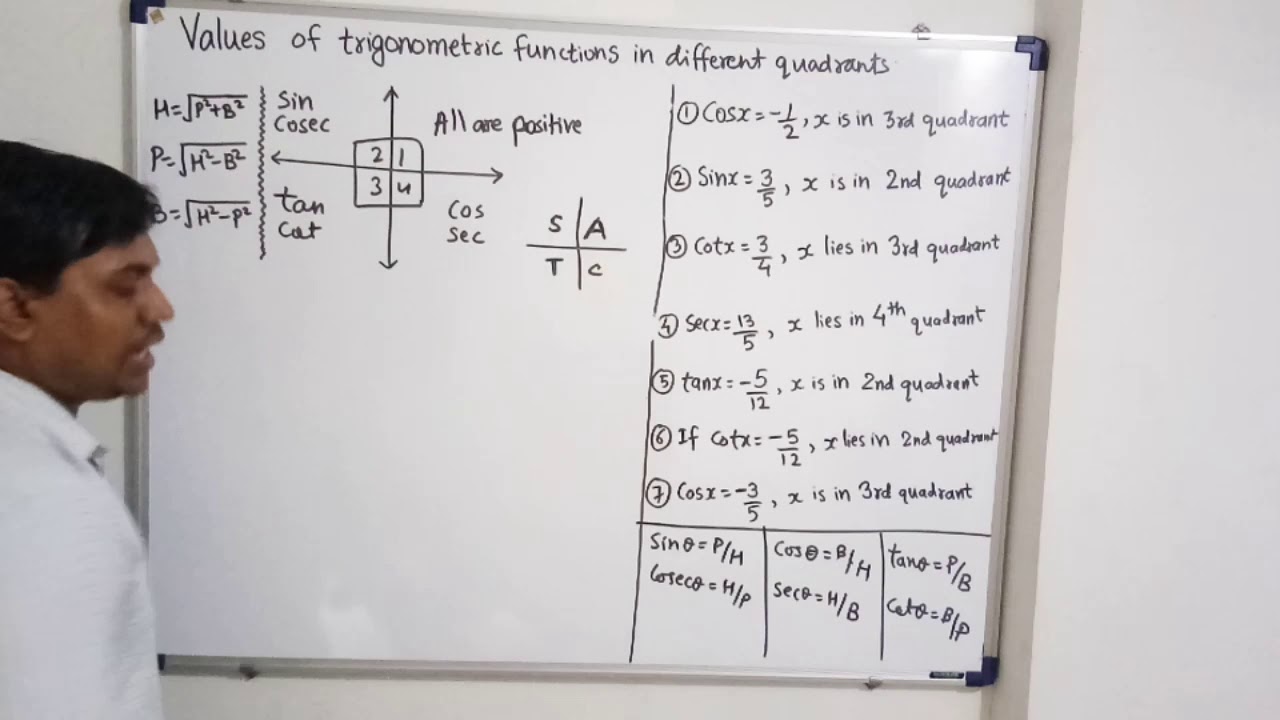 Values of trigonometric functions in different quadrants
H=√P²+B²
P=√H²-B²
B=√H²-P²
Sin
Cosec
All are positive
2 1
3 4
tan
Cot
Cos
Sec
S A
T C
① Cosx=-1/2, x is in 3rd quadrant
② Sinx=3/5, x is in 2nd quadrant
③ Cotx=3/4, x lies in 3rd quadrant
④ Secx=13/5, x lies in 4th quadrant
⑤ tanx=-5/12, x is in 2nd quadrant
⑥ If Cotx=-5/12, x lies in 2nd quadrant
⑦ Cosx=-3/5, x is in 3rd quadrant
Sinθ=P/H
Cosecθ=H/P
Cosθ=B/H
Secθ=H/B
tanθ=P/B
Cotθ=B/P